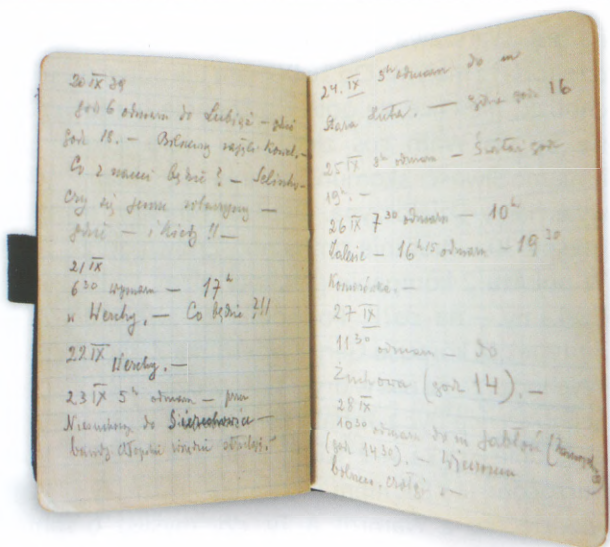 20 IX 39
god 6 odmarsz do Lubiąż – gdzie
god 18. – Bolszewicy zajęli Kowel. –
Co z nami będzie? –
czy się jeszcze zobaczymy –
gdzie – i kiedy?! –
21 IX
6 30 wymarsz – 17 h
w Werchy. – Co będzie?!!
22 IX Werchy. –
23 IX 5 h odmarsz – przez
do Sierzchowicz –
bandy chłopskie
24. IX 5 h odmarsz do m
Stara Huta. – gdzie god 16
25 IX 8 h odmarsz – Świtaź god
19 h. –
26 IX 7 30 odmarsz – 10 h
Zalesie – 16 h 15 odmarsz – 19 30
Komarówka. –
27 IX
11 30 odmarsz – do
Żuchowa (god 14). –
28 IX
10 30 odmarsz do m Jabłoń
(god 14 30). – Wieczorem
bolszew. czołgi. –